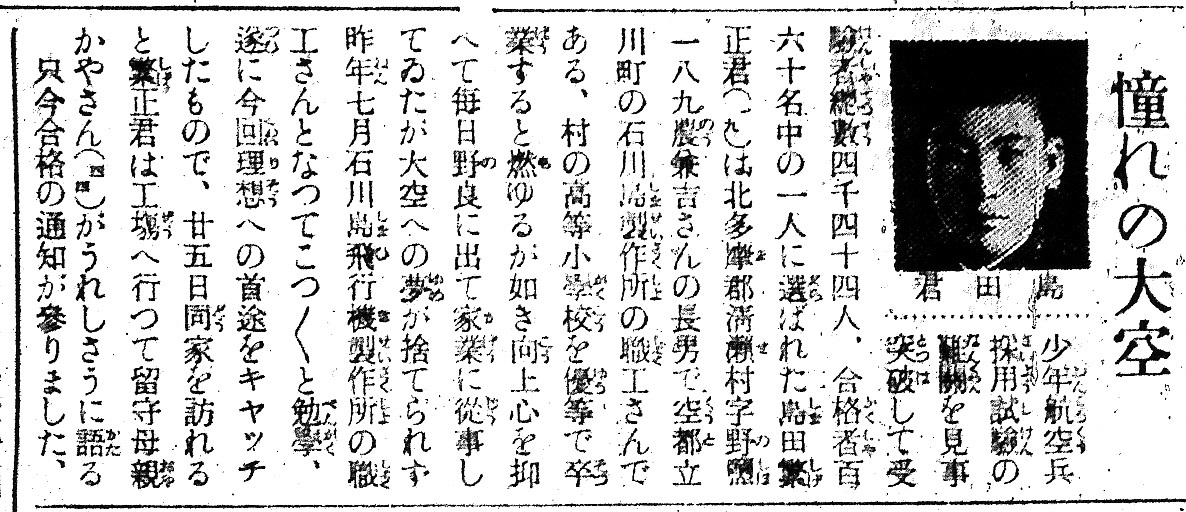 憧れの大空
島田君
少年航空兵
採用試験の
難關を見事
突破して受
驗者總數四千四十四人、合格者百
六十名中の一人に選ばれた島田繁
正君は北多摩郡淸瀬村字野鹽
一八九農兼吉さんの長男で空都立
川町の石川島製作所の職工さんで
ある、村の高等小學校を優等で卒
業すると燃ゆるが如き向上心を抑
へて毎日野良に出て家業に從事し
てゐたが大空への夢が捨てられず
昨年七月石川島飛行機製作所の職
工さんとなつてこつ〱と勉學、
遂に今回理想への首途をキヤッチ
したもので、廿五日同家を訪れる
と繁正君は工場へ行つて留守母親
かやさん(四三)がうれしさうに語る
只今合格の通知が參りました、